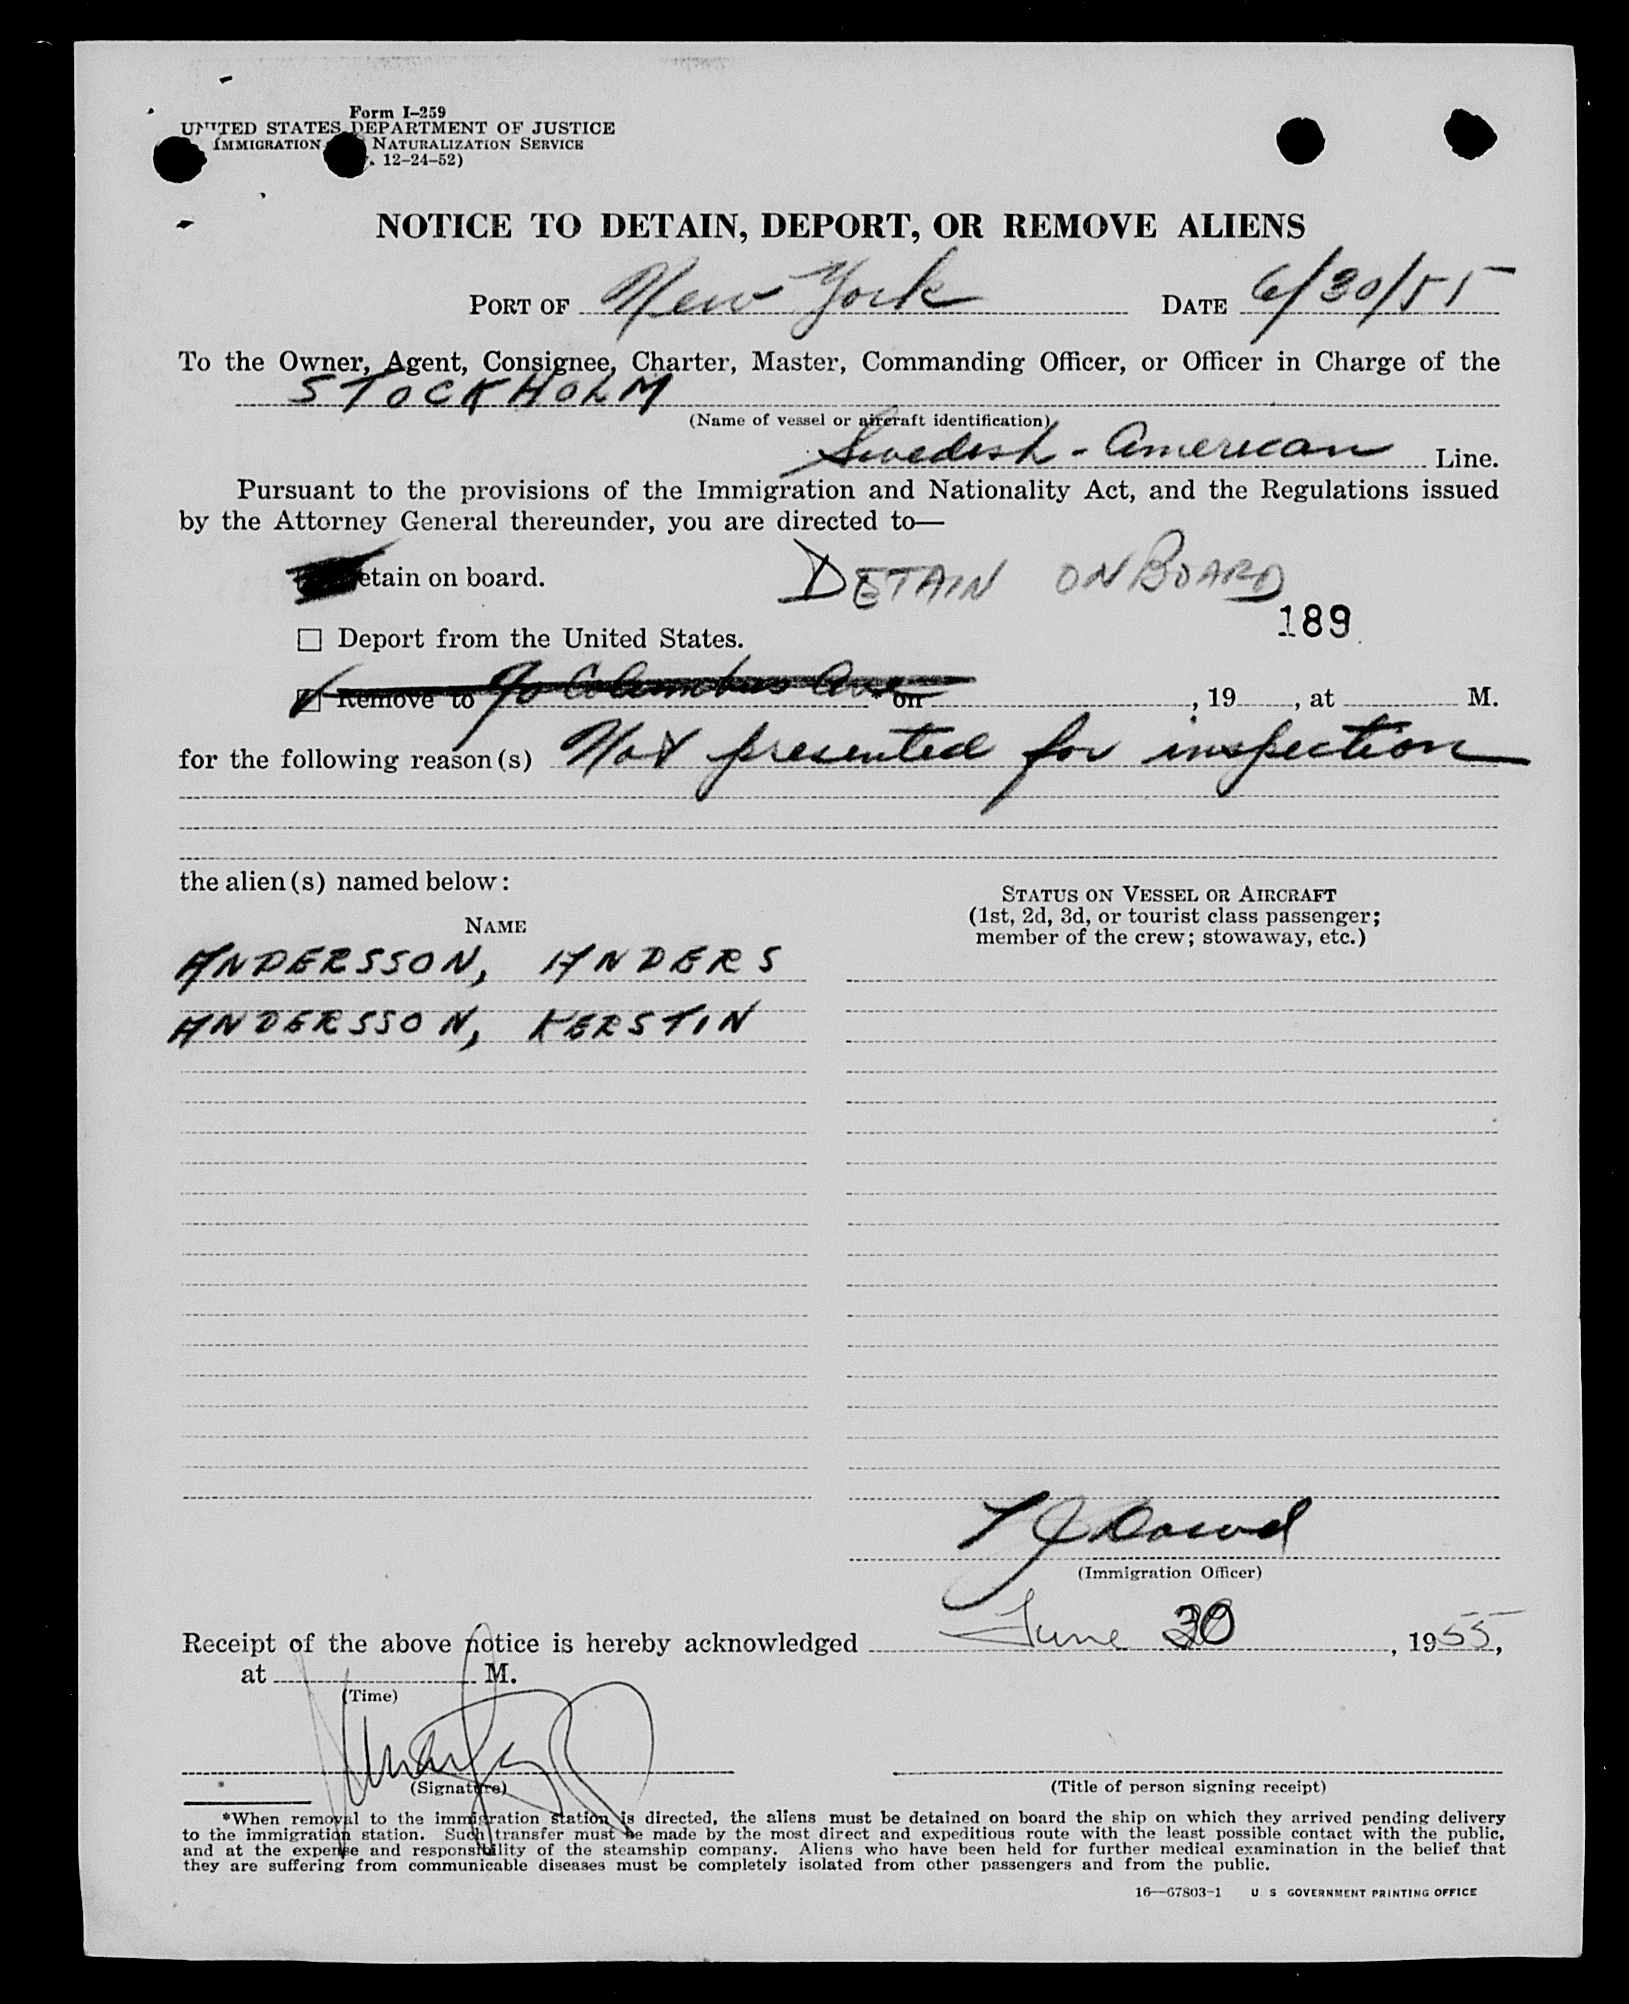 Form I-259
UNITED STATES DEPARTMENT OF JUSTICE
IMMIGRATION NATURALIZATION SERVICE
. 12-24-52)
NOTICE TO DETAIN, DEPORT, OR REMOVE ALIENS
PORT OF New York DATE 6/30/55
To the Owner, Agent, Consignee, Charter, Master, Commanding Officer, or Officer in Charge of the
STOCKHOLM
(Name of vessel or aircraft identification)
Swedish-American Line.
Pursuant to the provisions of the Immigration and Nationality Act, and the Regulations issued
by the Attorney General thereunder, you are directed to—
etain on board. DETAIN ON BOARD
189
☐ Deport from the United States.
Remove to 90 Columbus Ave * on , 19 , at M.
for the following reason(s) Not presented for inspection
the alien(s) named below:
STATUS ON VESSEL OR AIRCRAFT
(1st, 2d, 3d, or tourist class passenger;
member of the crew; stowaway, etc.)
NAME
ANDERSSON, ANDERS
ANDERSSON, KERSTIN
(Immigration Officer)
Receipt of the above notice is hereby acknowledged June 30, 1955,
at M.
(Time)
(Signature) (Title of person signing receipt)
*When removal to the immigration station is directed, the aliens must be detained on board the ship on which they arrived pending delivery
to the immigration station. Such transfer must be made by the most direct and expeditious route with the least possible contact with the public,
and at the expense and responsibility of the steamship company. Aliens who have been held for further medical examination in the belief that
they are suffering from communicable diseases must be completely isolated from other passengers and from the public.
16—67803-1 U S GOVERNMENT PRINTING OFFICE